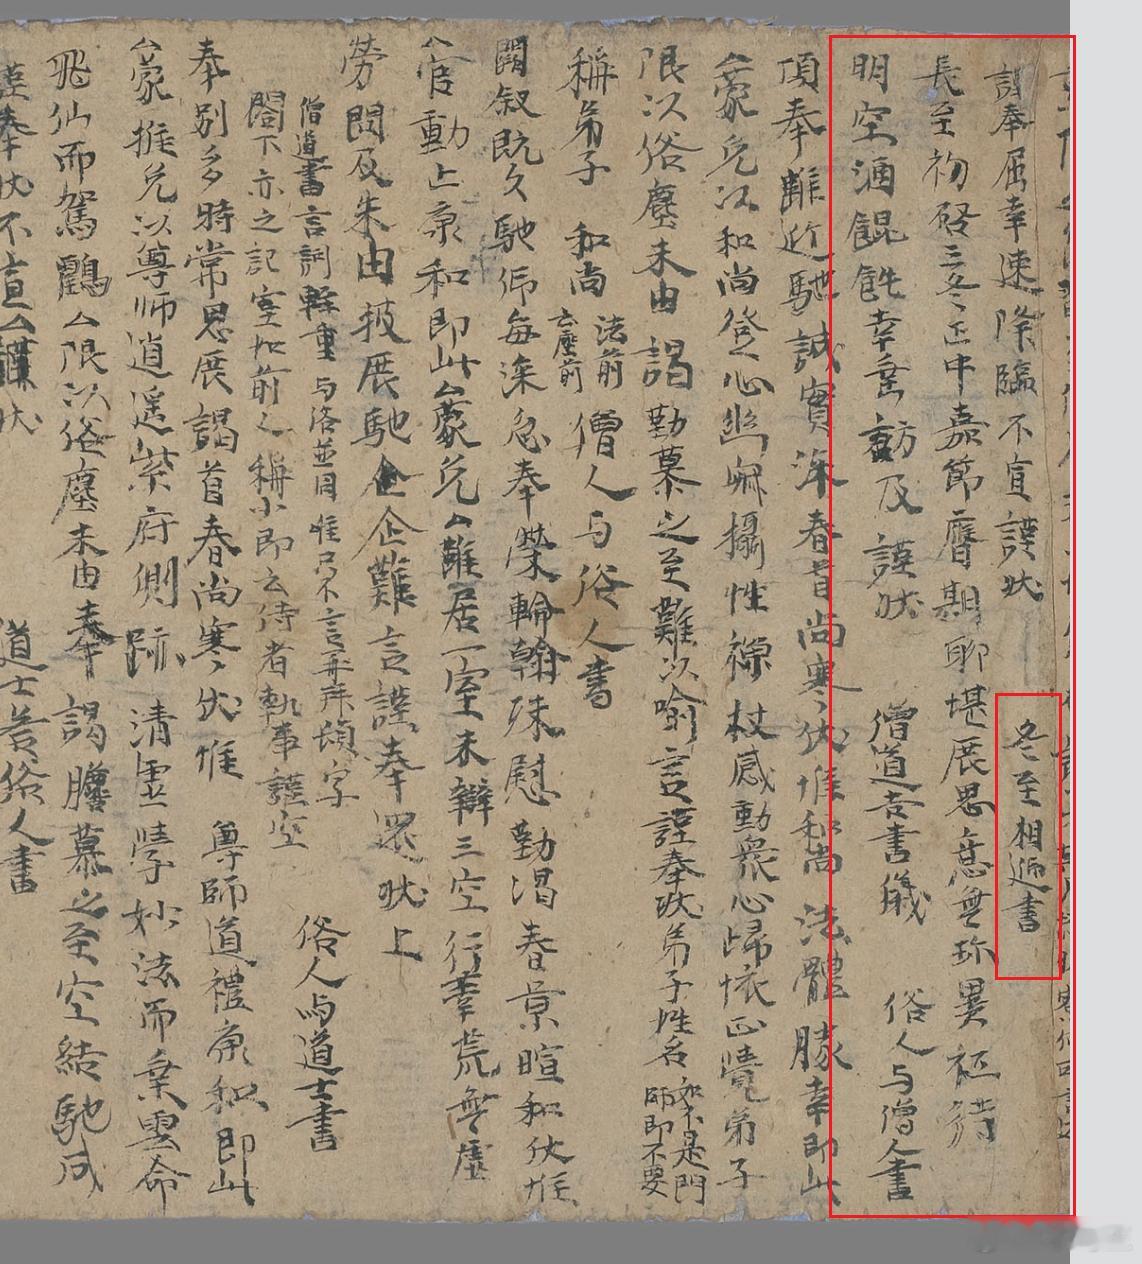 謹奉屈幸速降臨不宣謹狀　冬至相迎書
長至初啓三冬正中嘉節膺期聊堪展思意無珎異祗待
明空酒餛飩幸垂訪及謹狀　僧道吉書儀　俗人与僧人書
頂奉雖近馳誠實深春首尚寒伏惟和尚法體勝幸即此
厶蒙免以和尚登心幽崛攝性禪杖感動衆心歸依正覺弟子
限以俗塵未由謁勤慕之至難以喻言謹奉狀弟子姓名如不是門師即不要
稱弟子　和尚法前云座前　僧人与俗人書
闊叙既久馳仰每深忽奉榮輪翰殊慰勤渴春景暄和伏惟
厶官動止康和即此厶蒙免厶雖居一室未辯三空行業荒無虛
勞問及未由披展馳企企難言謹奉還狀上
僧道書言詞輕重与洛並同惟只不言再拜頓字　俗人与道士書
閤下亦之記室加前之稱小即云侍者執事謹空
奉別多時常思展謁首春尚寒伏惟　尊師道禮康和即此
厶蒙推免以尊師道遥紫府側跡清虛學妙法而乗雲命
飛仙而駕鶴厶限以俗塵未由奉謁朦慕之至空結馳戍
謹奉狀不宣厶謹狀　道士荅俗人書